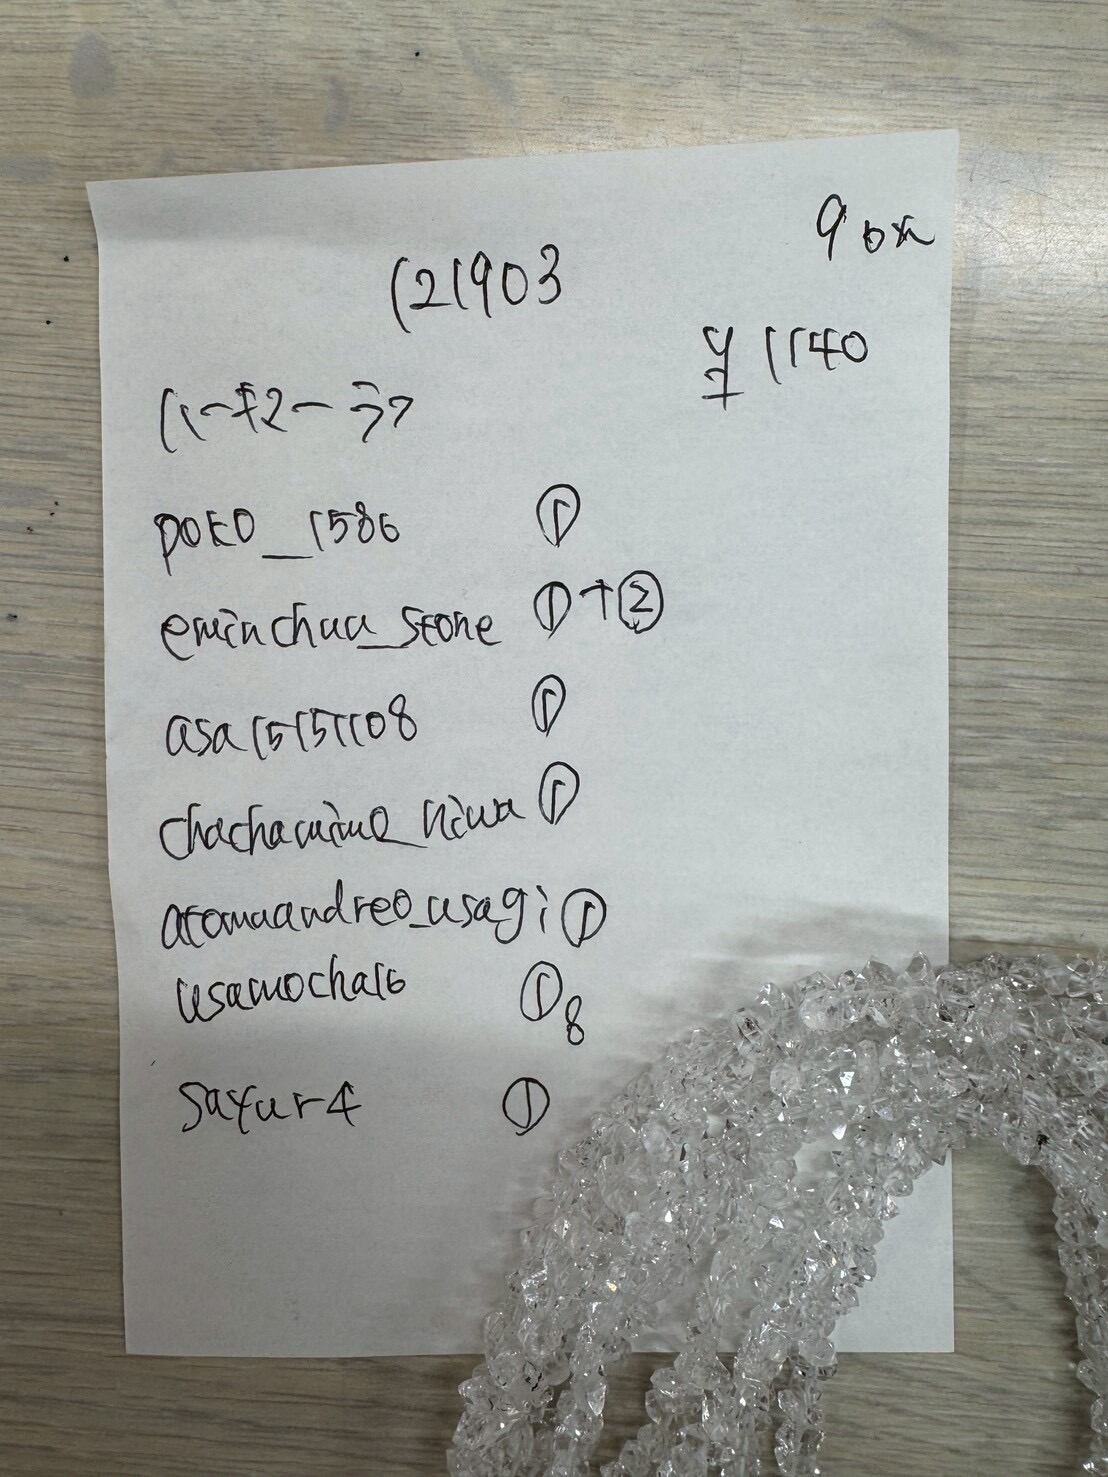 9ox
121903
¥1140
ハーキマーライ
poko_1586 ①
eminchuu_stone ①+②
asa15151108 ①
chachamimo_niwa ①
atomuandreo_usagi ①
usamocha16 ① 8
sayur4 ①